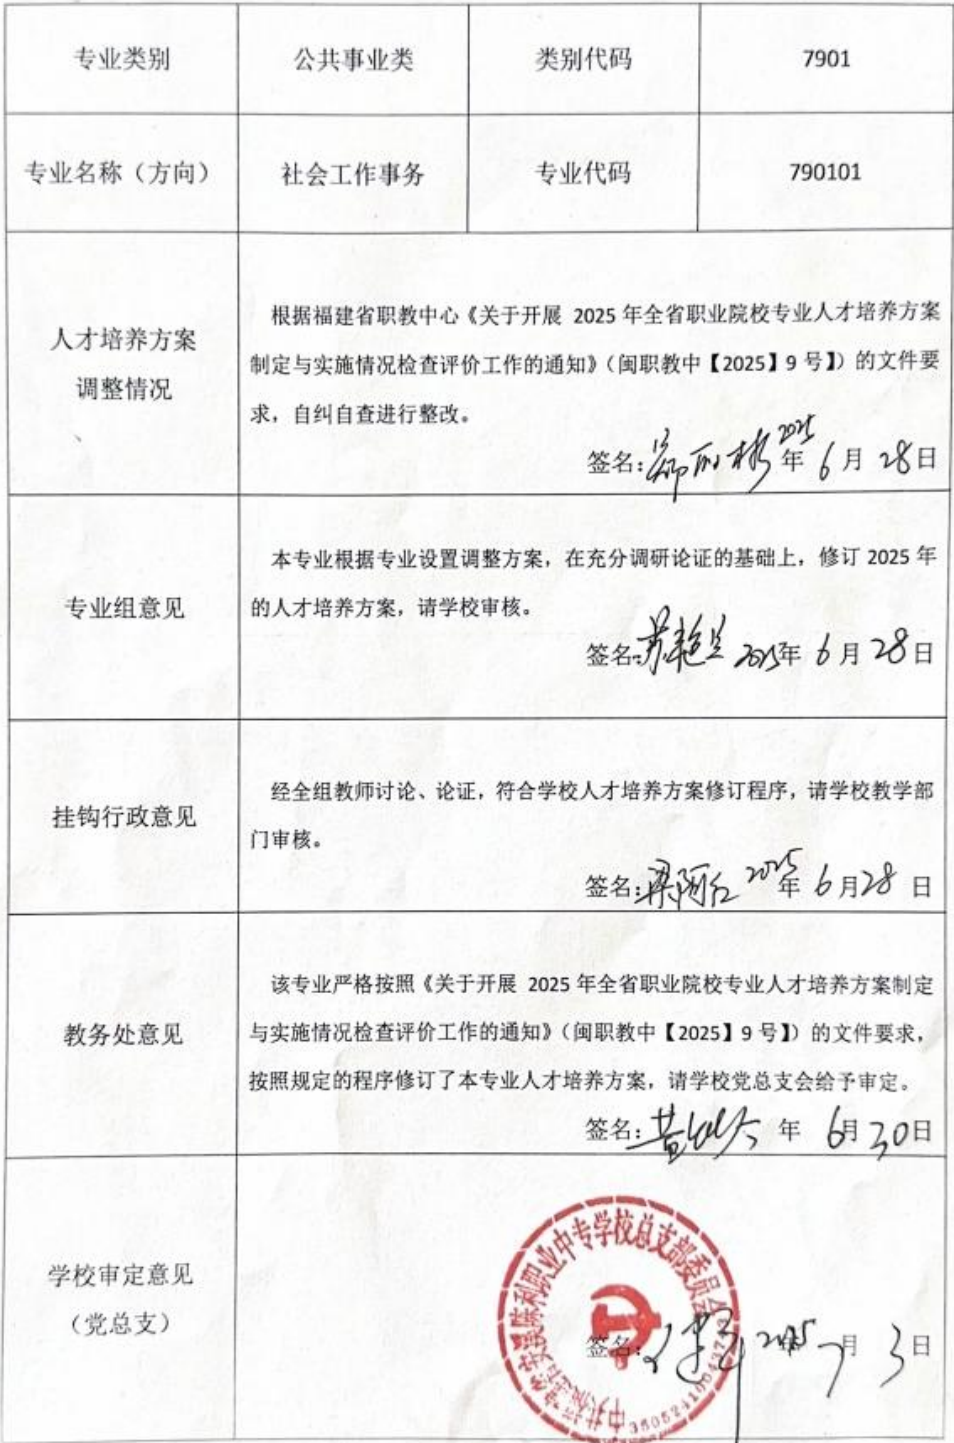 专业类别 公共事业类 类别代码 7901
专业名称（方向） 社会工作事务 专业代码 790101
人才培养方案
调整情况
根据福建省职教中心《关于开展 2025 年全省职业院校专业人才培养方案
制定与实施情况检查评价工作的通知》（闽职教中【2025】9 号】）的文件要
求，自纠自查进行整改。
签名: 2025 年 6 月 28 日
专业组意见
本专业根据专业设置调整方案，在充分调研论证的基础上，修订 2025 年
的人才培养方案，请学校审核。
签名: 2025 年 6 月 28 日
挂钩行政意见
经全组教师讨论、论证，符合学校人才培养方案修订程序，请学校教学部
门审核。
签名: 2025 年 6 月 28 日
教务处意见
该专业严格按照《关于开展 2025 年全省职业院校专业人才培养方案制定
与实施情况检查评价工作的通知》（闽职教中【2025】9 号】）的文件要求，
按照规定的程序修订了本专业人才培养方案，请学校党总支会给予审定。
签名: 年 6 月 30 日
学校审定意见
（党总支）
安溪陈利职业中专学校总支部委员会
签名: 2025 年 7 月 3 日